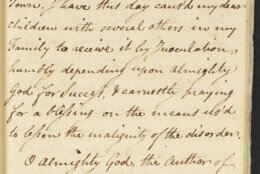 Town, I have this day caus'd my dear
children with several others in my
Family to receive it by Inoculation,
humbly depending upon Almighty
God for Success, & earnestly praying
for a blessing on the means us'd
to lessen the malignity of the disorder.
O Almighty God, the Author of